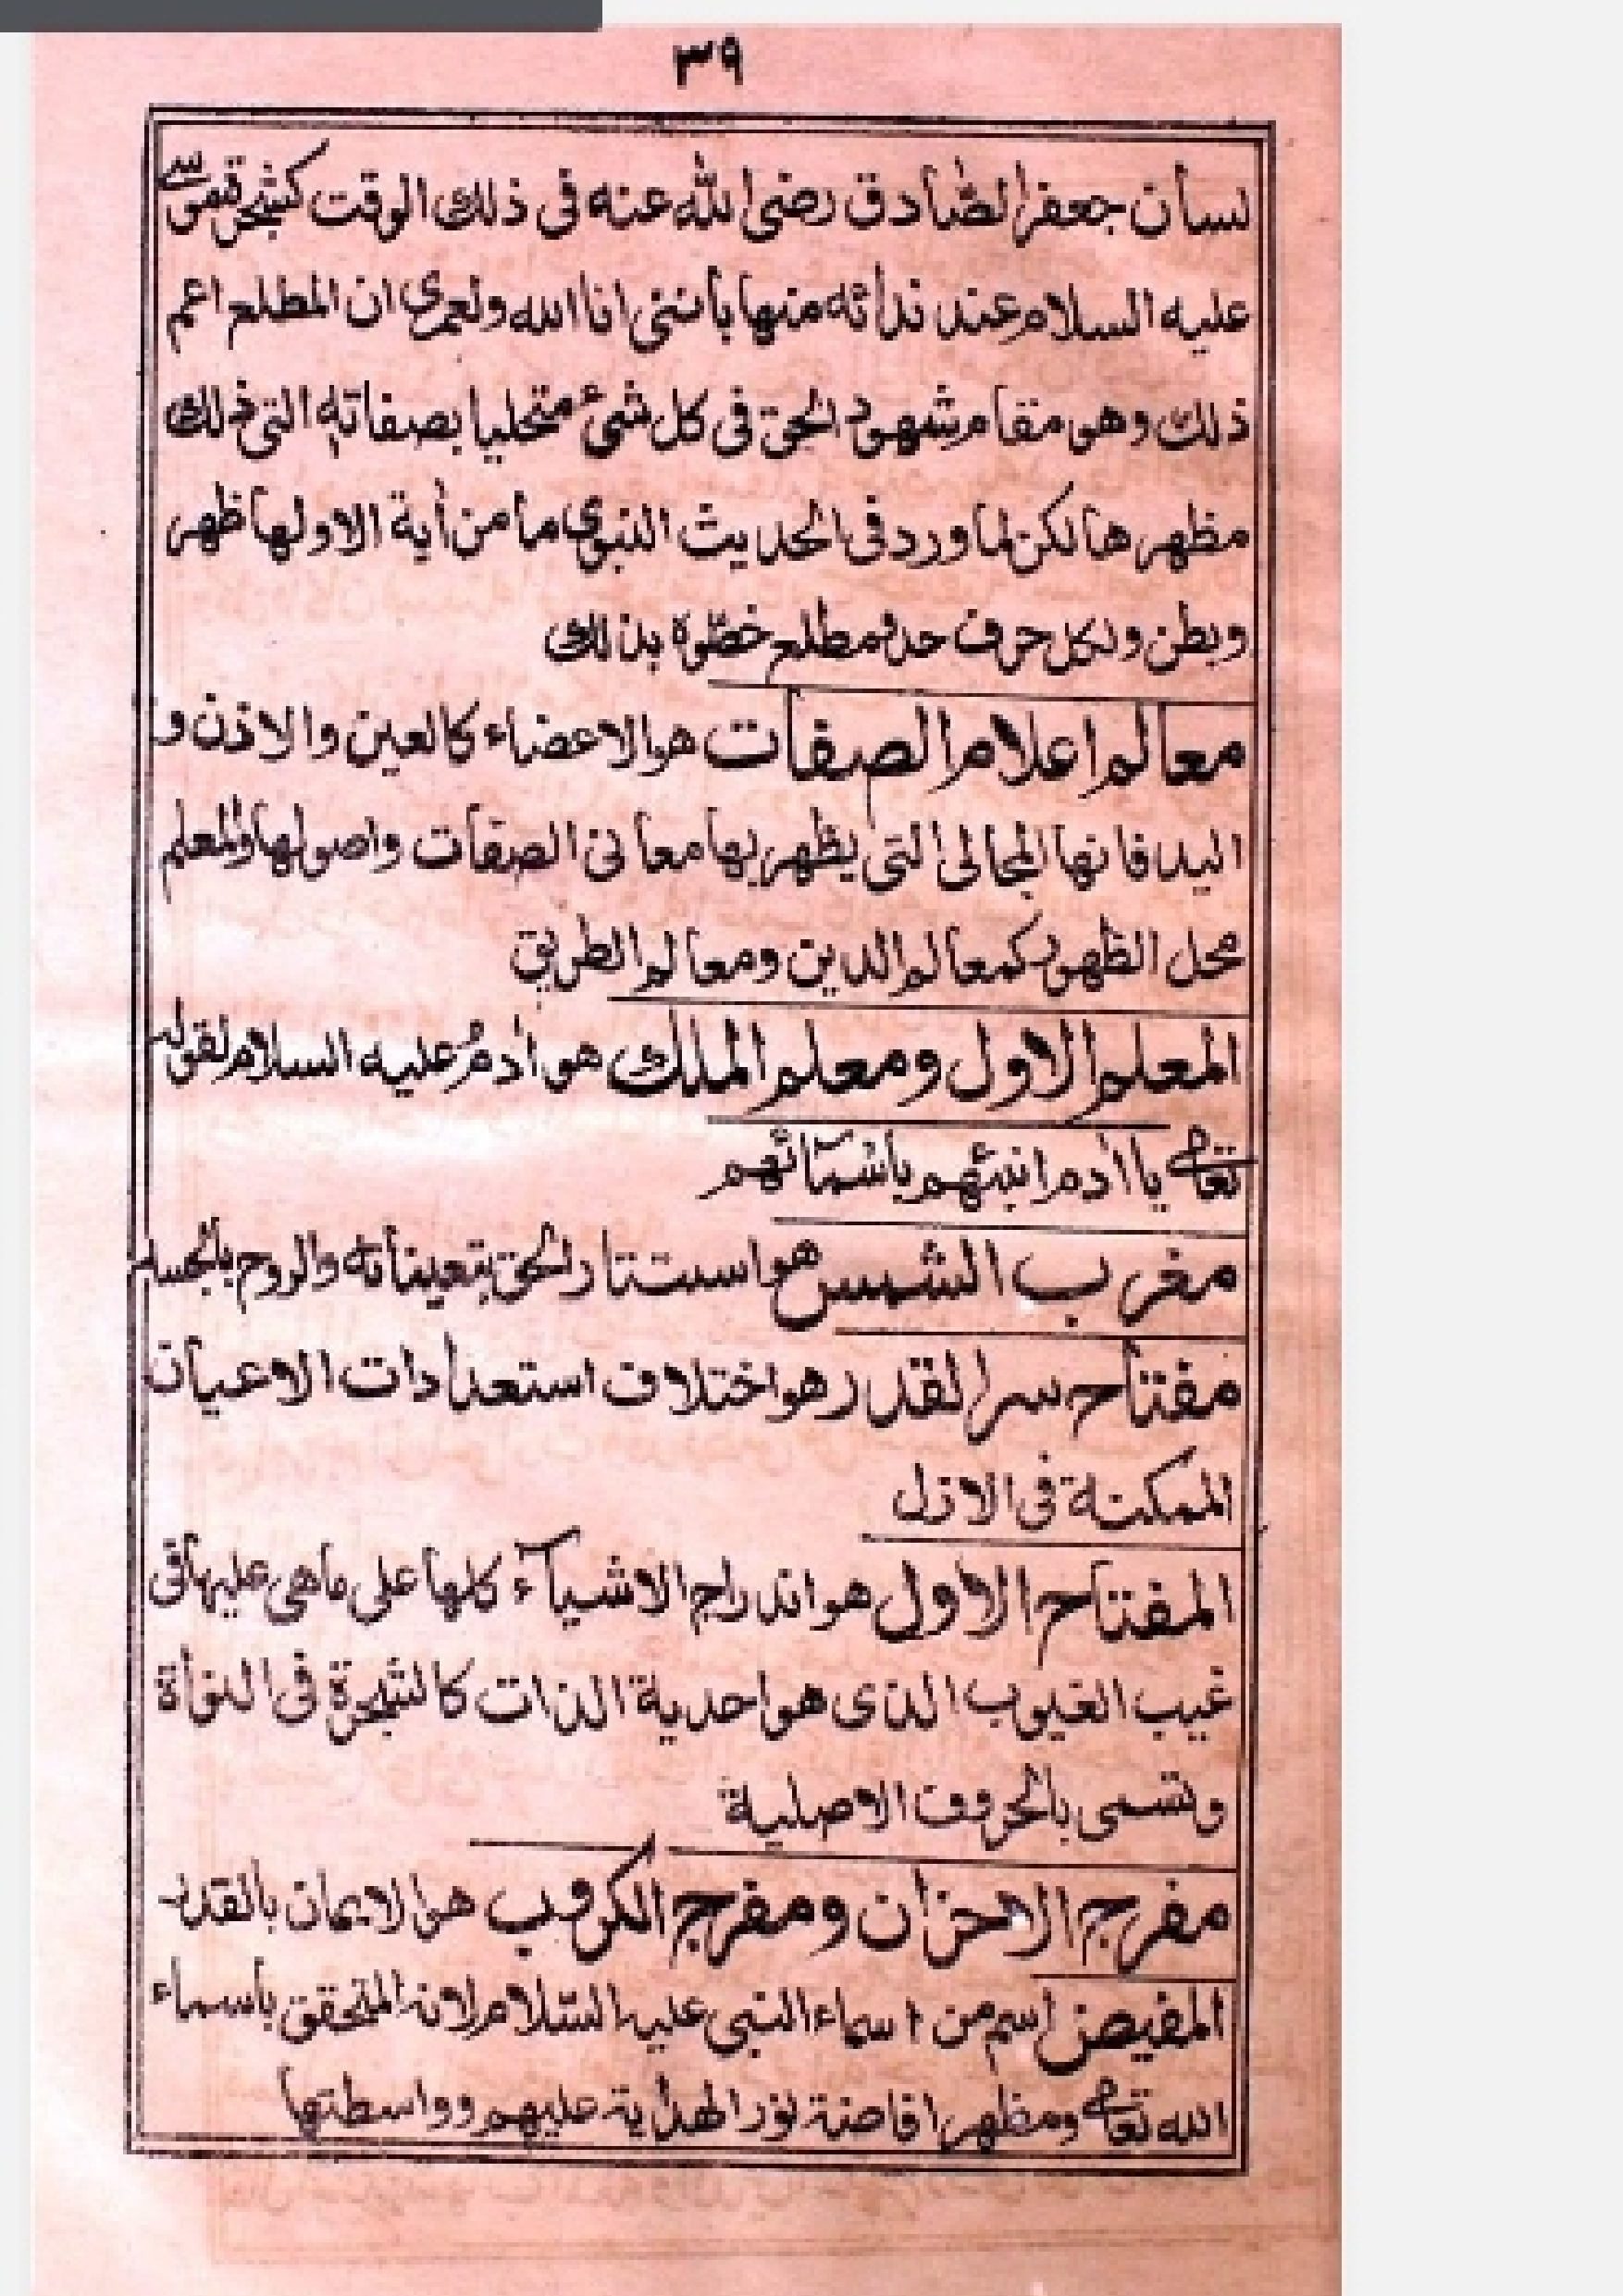 ٣٩
لسان جعفر الصادق رضی الله عنه فی ذلك الوقت کشجرة موسی
علیه السلام عند ندائه منها باننی انا الله ولعمری ان المطلع اعم
ذلك وهو مقام شهود الحق فی کل شیء متجلیا بصفاته التی ذلك
مظهرها لکن لما ورد فی الحدیث النبوی ما من أیة الا ولها ظهر
وبطن ولکل حرف حد ومطلع خصوه بذلك
معالم اعلام الصفات هو الاعضاء کالعین والاذن و
الید فانها المجالی التی یظهر بها معانی الصفات واصولها والمعلم
محل الظهور کمعالم الدین ومعالم الطریق
المعلم الاول ومعلم الملك هو أدم علیه السلام لقوله
تعالی یا أدم انبئهم باسمائهم
مغرب الشمس هو استتار الحق بتعیناته والروح بالجسد
مفتاح سر القدر هو اختلاف استعدادات الاعیان
الممکنة فی الازل
المفتاح الاول هو اندراج الاشیاء کلها علی ماهی علیها فی
غیب الغیوب الذی هو احدیة الذات کالشجرة فی النواة
وتسمی بالحروف الاصلیة
مفرج الاحزان ومفرج الکروب هو الایمان بالقدر
المفیض اسم من اسماء النبی علیه السلام لانه المتحقق باسماء
الله تعالی ومظهر افاضة نور الهدایة علیهم وواسطتها